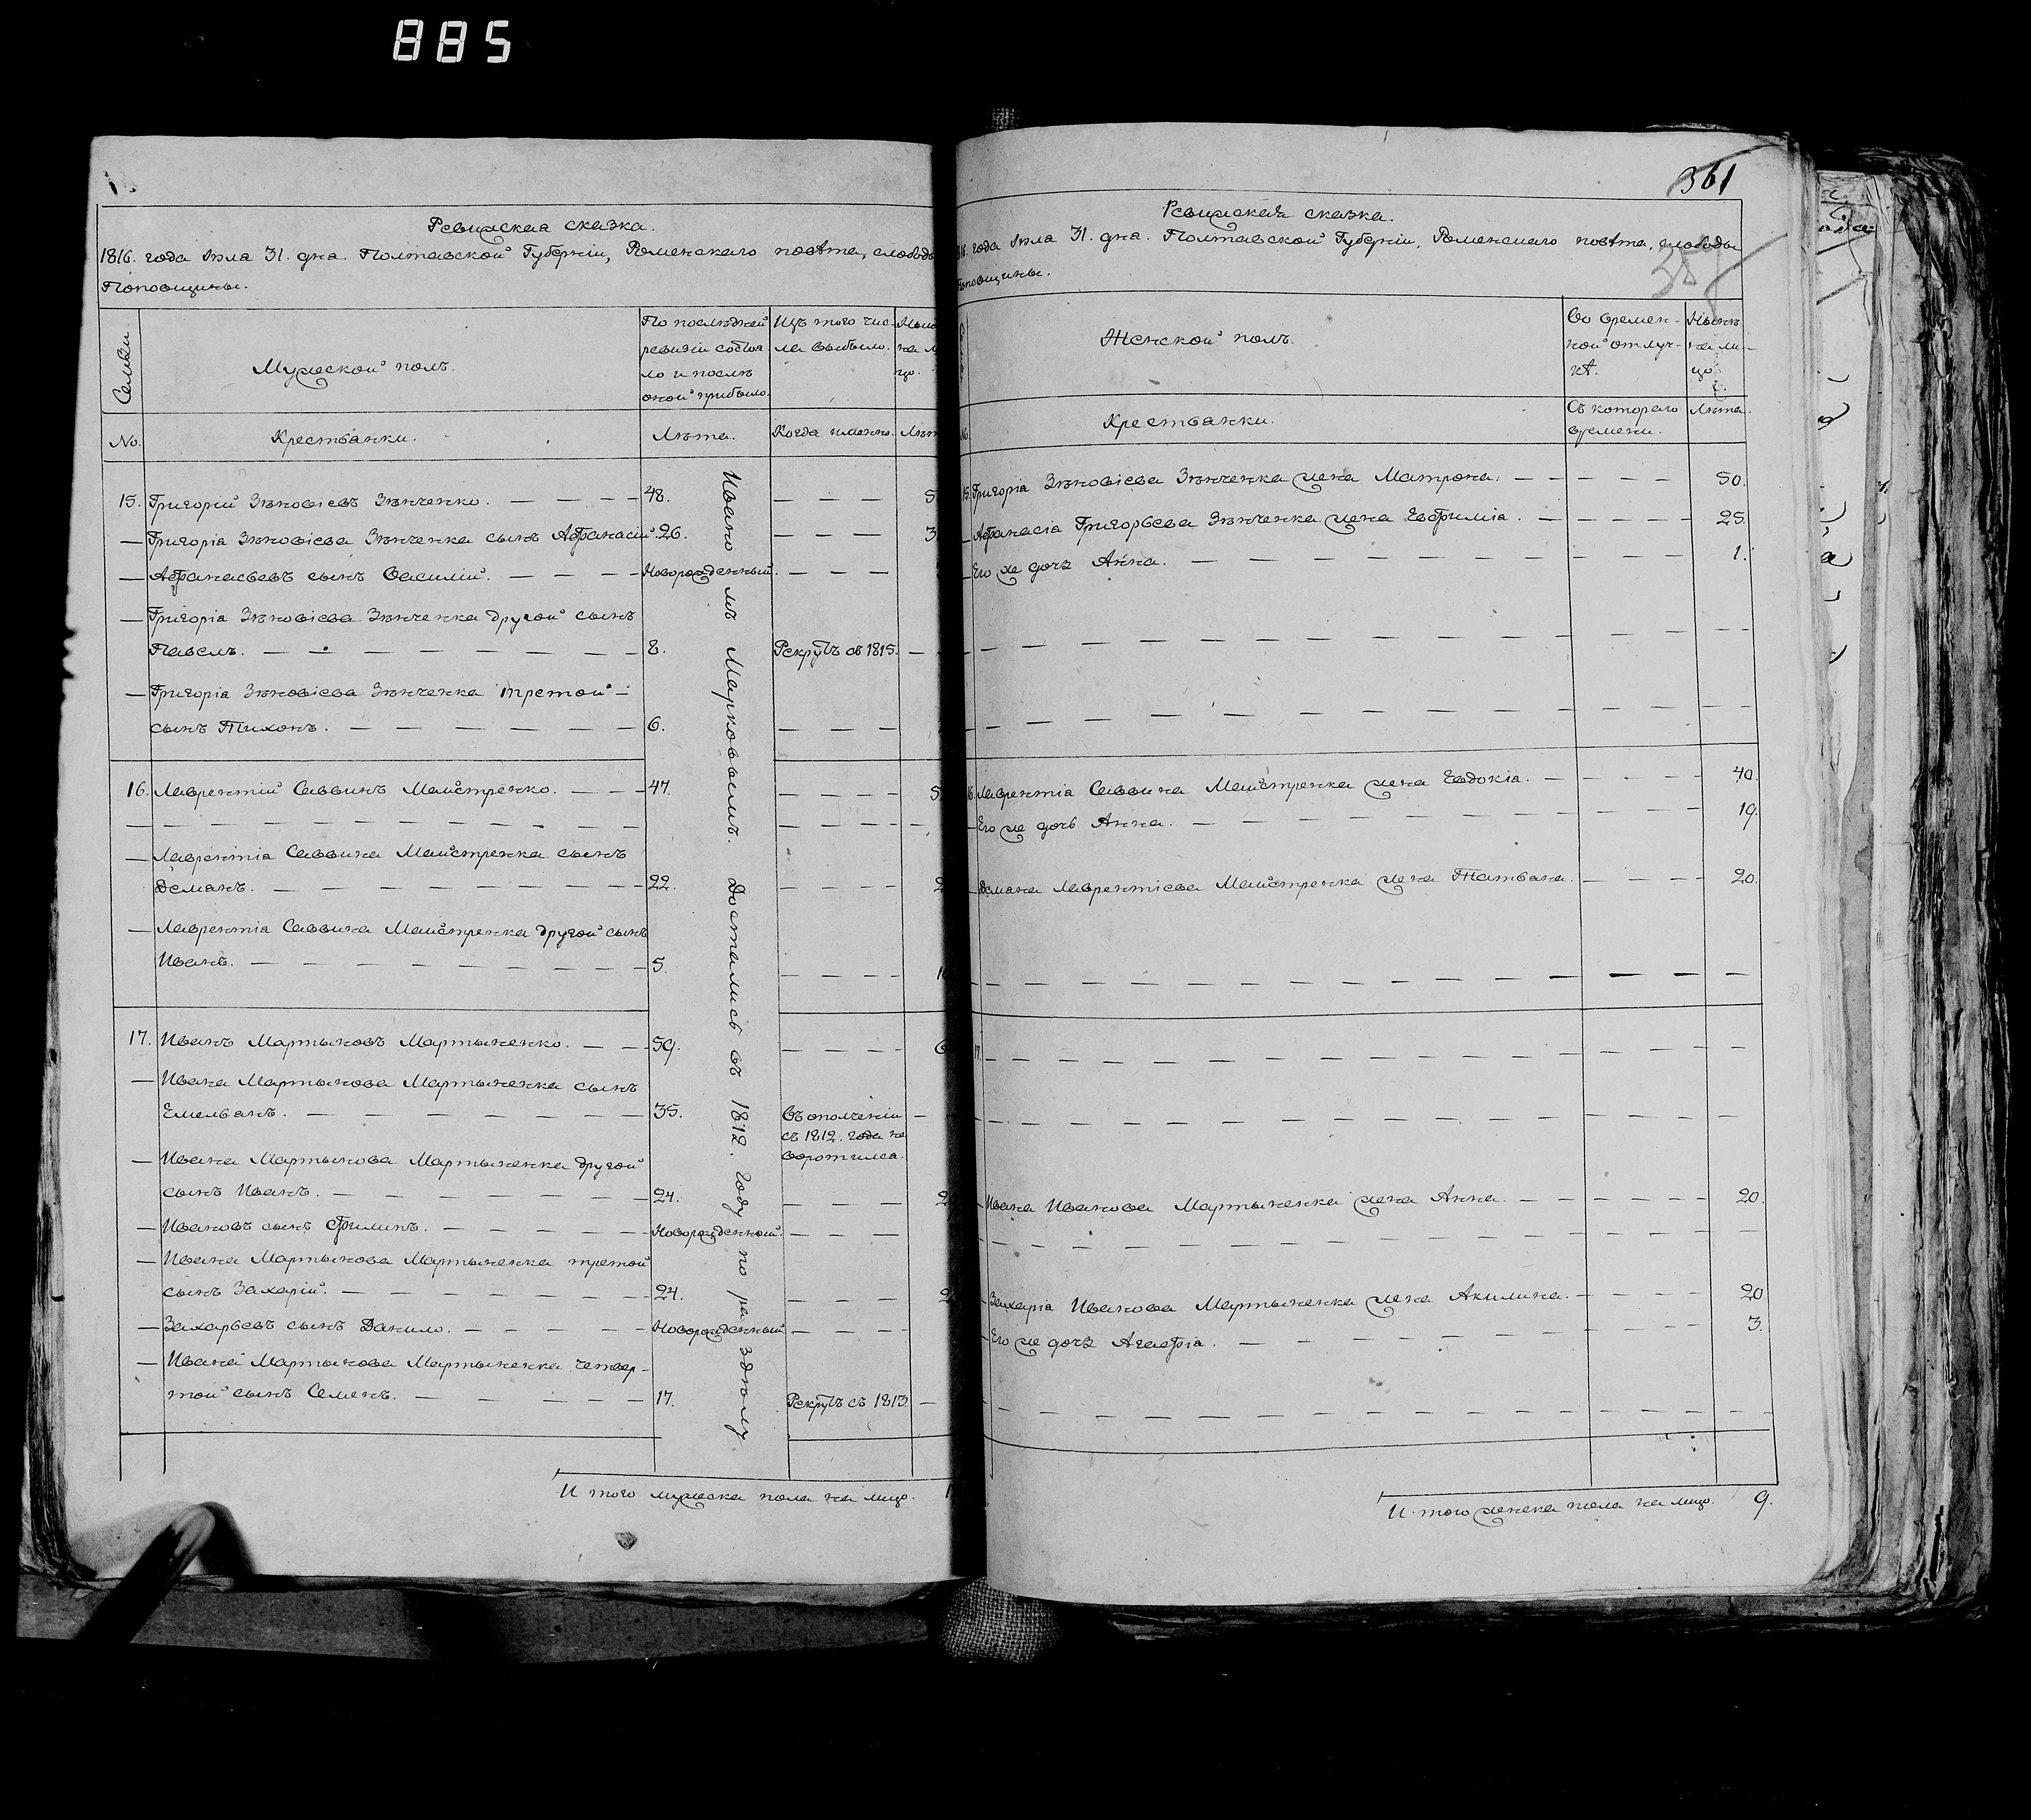 885
Ревижская сказка.
1816. года Июла 31. дна. Полтавской Губерніи, Роменскаго повѣта, слободы
Поповщины.
Семьи
Мужеской полъ.
По послѣдней
ревизіи состоа
ло и послѣ
оной прибыло.
Изъ того чис-
ла выбыло.
No.
Крестьянки.
Лѣта.
Когда именно.
15. Григорій Зѣновіевъ Зѣнченко. — — — — 48. — — —
— Григоріа Зѣновіева Зѣнченка сынъ Афанасій. 26. — — —
— Афанасьевъ сынъ Василій. — — — — Новорожденный. — — —
— Григоріа Зѣновіева Зѣнченка другой сынъ
Павелъ. — — — — — — — — 8. Рекрутъ въ 1815. —
— Григоріа Зѣновіева Зѣнченка третой —
сынъ Тихонъ. — — — — — — 6. — — —
16. Лаврентій Саввинъ Майстренко. — — — 47. — — — —
— — — — — — — — — — — — — —
— Лаврентіа Саввина Майстренка сынъ
Деманъ. — — — — — — — — — 22. — — —
— Лаврентіа Саввина Майстренка другой сынъ
Иванъ. — — — — — — — — — 5. — — — —
17. Иванъ Мартыновъ Мартыненко. — — — 59. — — — —
— Ивана Мартынова Мартыненка сынъ
Емельанъ. — — — — — — — — 35. Въ ополченіи —
съ 1812. года не
воротилса.
— Ивана Мартынова Мартыненка другой
сынъ Иванъ. — — — — — — — 24. — — — —
— Ивановъ сынъ Филипъ. — — — — — Новорожденный. — — —
— Ивана Мартынова Мартыненка третой
сынъ Захарій. — — — — — — — 24. — — — —
— Захарьевъ сынъ Данило. — — — — — Новорожденный — — — —
— Ивана Мартынова Мартыненка четвер-
той сынъ Семенъ. — — — — — 17. Рекрутъ съ 1813. —
Иваномъ Марковымъ. Достались въ 1812. году по раздѣлу
И того мужеска пола на лицо.
361
Ревижская сказка.
года Июла 31. дна. Полтавской Губерніи, Роменскаго повѣта, слободы
Поповщины.
Женской полъ.
Во времен-
ной отлуч-
кѣ.
Нынѣ
на ли-
цо.
Крестьянки.
Съ котораго
времени.
Лѣта.
15. Григоріа Зѣновіева Зѣнченка жена Матрона. — — — — — — 50.
— Афанасіа Григорьева Зѣнченка жена Евфиміа. — — — — — 25.
— Его же дочь Анна. — — — — — — — — — — 1.
— — — — — — — — — — — — — —
— — — — — — — — — — — — — —
16. Лаврентіа Саввина Майстренка жена Евдокіа. — — — — — 40.
— Его же дочь Анна. — — — — — — — — — — 19.
— Демана Лаврентіева Майстренка жена Татьана. — — — — 20.
— — — — — — — — — — — — — —
17. — — — — — — — — — — — — — —
— — — — — — — — — — — — — —
— Ивана Иванова Мартыненка жена Анна. — — — — — — 20.
— — — — — — — — — — — — — —
— Захаріа Иванова Мартыненка жена Акилина. — — — — — 20
— Его же дочь Агафіа. — — — — — — — — — — 3.
— — — — — — — — — — — — — —
И того женска пола на лицо. 9.